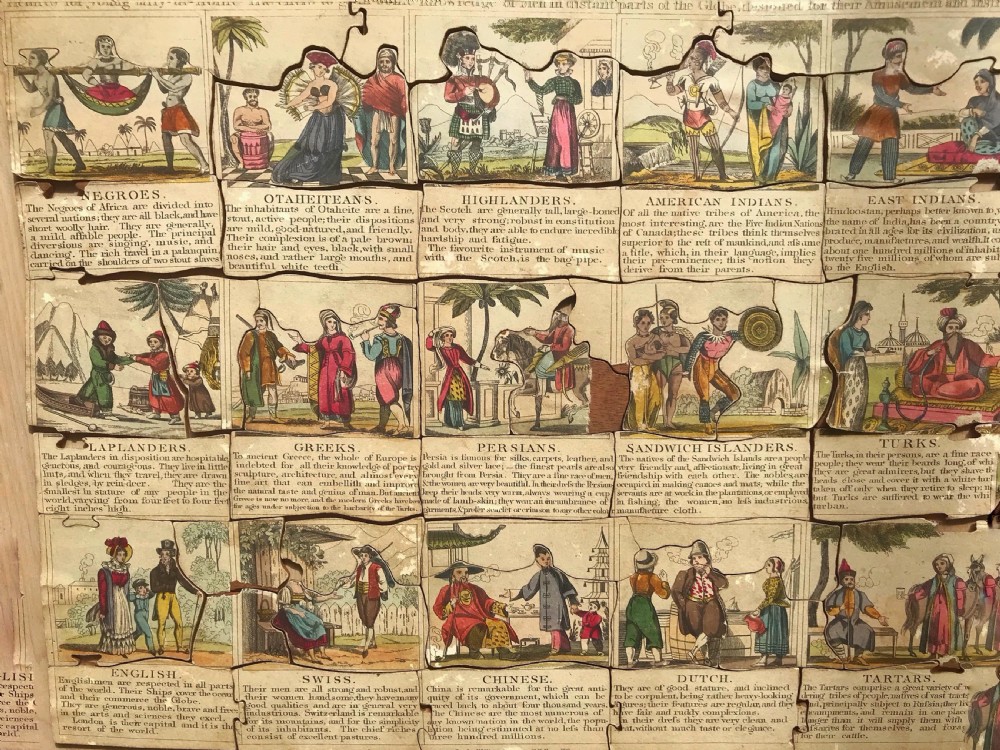 for young
knowledge of Men in distant parts of the Globe, designed for their Amusement and
NEGROES.
The Negroes of Africa are divided into
several nations; they are all black, and have
short woolly hair. They are, generally,
a mild, affable people. The principal
diversions are singing, music, and
dancing. The rich travel in a palanquin
carried on the shoulders of two stout slaves
OTAHEITEANS.
The inhabitants of Otaheite are a fine,
stout, active people; their dispositions
are mild, good-natured, and friendly.
Their complexion is of a pale brown
their hair and eyes, black, with small
noses, and rather large mouths, and
beautiful white teeth.
HIGHLANDERS.
The Scotch are generally tall, large-boned
and very strong; robust in constitution
and body, they are able to endure incredible
hardship and fatigue.
The favourite instrument of music
with the Scotch, is the bag-pipe.
AMERICAN INDIANS.
Of all the native tribes of America, the
most interesting, are the Five Indian Nations
of Canada; these tribes think themselves
superior to the rest of mankind, and assume
a title, which, in their language, implies
their pre-eminence; this notion they
derive from their parents.
EAST INDIANS.
Hindoostan, perhaps better known to
the name of India, has been a country
brated in all ages for its civilization,
produce, manufactures, and wealth. It
about one hundred millions of inhabi
twenty five millions, of whom are sub
to the English.
LAPLANDERS.
The Laplanders in disposition are hospitable,
generous, and couragious. They live in little
huts, and, when they travel, they are drawn
in sledges, by rein deer. They are the
smallest in stature of any people in the
world, varying from four feet to four feet
eight inches high.
GREEKS.
To ancient Greece, the whole of Europe is
indebted for all their knowledge of poetry
sculpture, architecture, and almost every
fine art that can embellish and improve
the natural taste and genius of man. But ancient
Greece is now no more, and the modern Greeks have been
for ages under subjection to the barbarity of the Turks.
PERSIANS.
Persia is famous for silks, carpets, leather, and
gold and silver lace; the finest pearls are also
brought from Persia. They are a fine race of men,
& the women, are very beautiful. In these the Persians
keep their heads very warm, always wearing a cap
made of lamb-skin; they wear an incumbrance of
garments, & prefer scarlet or crimson to any other colour
SANDWICH ISLANDERS.
The natives of the Sandwich Islands are a people
very friendly and affectionate, living in great
friendship with each other. The nobles are
occupied in making canoes and mats, while the
servants are at work in the plantations, or employed
in fishing, the women, and less industrious
manufacture cloth.
TURKS.
The Turks, in their persons, are a fine race
people; they wear their beards long, of which
they are great admirers, but they shave their
heads close and cover it with a white tur
taken off only when they retire to sleep
but Turks are suffered to wear the whi
turban.
ENGLISH.
Englishmen are respected in all parts
of the world. Their Ships cover the ocean
and their commerce the Globe.
They are generous, noble, brave and free
in the arts and sciences they exceed
London is their capital and it is the
resort of the world.
SWISS.
Their men are all strong and robust, and
their women handsome, they have many
good qualities and are in general very
industrious. Switzerland is remarkable
for its mountains, and for the simplicity
of its inhabitants. The chief riches
consist of excellent pastures.
CHINESE.
China is remarkable for the great anti-
quity of its government, which can be
traced back to about four thousand years.
The Chinese are the most numerous of
any known nation in the world, the popu-
lation being estimated at no less than
three hundred millions.
DUTCH.
They are of good stature, and inclined
to be corpulent, being rather heavy-looking
figures; their features are regular, and they
have fair and ruddy complexions.
in their dress they are very clean and
neat, without much taste or elegance.
TARTARS.
The Tartars comprise a great variety of
wandering tribes of people, natives of vast tracts
land, principally subject to Russia; they live
encampments, and remain in one place
longer than it will supply them with
necessaries for themselves, and forage
for their cattle.